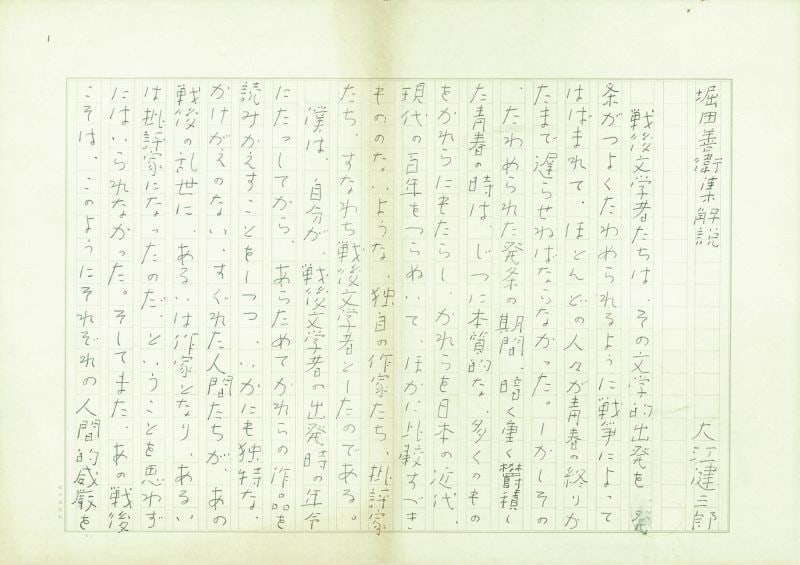 1
堀田善衞集解説
大江健三郎
戦後文学者たちは、その文学的出発を、発
条がつよくたわめられるように戦争によって
はばまれて、ほとんどの人々が青春の終りか
たまで遅らせねばならなかった。しかしその
、たわめられた発条の期間、暗く重く欝積し
た青春の時は、じつに本質的な、多くのもの
をかれらにもたらし、かれらを日本の近代、
現代の百年をつらぬいて、ほかに比較すべき
もののないような、独自の作家たち、批評家
たち、すなわち戦後文学者としたのである。
僕は、自分が、戦後文学者の出発時の年令
にたっしてから、あらためてかれらの作品を
読みかえすことをしつつ、いかにも独特な、
かけがえのない、すぐれた人間たちが、あの
戦後の乱世に、あるいは作家となり、あるい
は批評家になったのだ、ということを思わず
にはいられなかった。そしてまた、あの戦後
こそは、このようにそれぞれの人間的威厳を